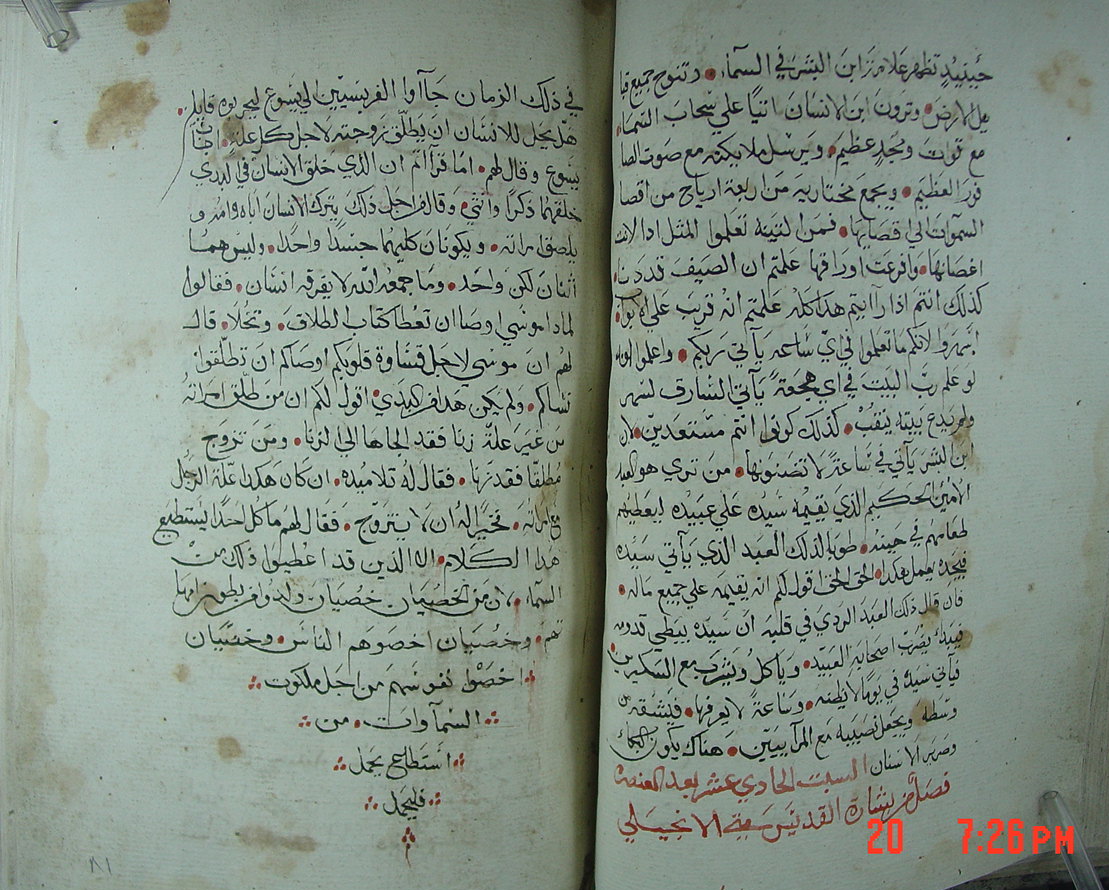 حينيدٍ تظهر علامة ابن البشر في السماء • وتنوح جميع قبا
يل الارض • وترون ابن الانسان اتيًا علي سحاب السماء
مع قوات ومجدٍ عظيم • ويرسل ملايكته مع صوت الصا
فور العظيم • ويجمع مختاريه من اربعة ارياح من اقصا
السموات الي اقصايها • فمن التينه تعلموا المثل ادا لانت
اغصانها • وافرعت اوراقها علمتم ان الصيف قد دنا
كذلك انتم اذا راايتم هذا كله علمتم انه قريب علي الابواب
اسهروا لانكم ما تعلموا في اي ساعه ياتي ربكم • واعلموا انه
لو علم ربّ البيت في اي هجعةٍ ياتي السارق لسهر
ولم يدع بيته ينقب • كذلك كونوا انتم مستعدين • لان
ابن البشر ياتي في ساعة لا تضنونها • من تري هو العبد
الامين الحكيم الذي يقيمه سيده علي عبيده ليعطيهم
طعامهم في حينه • طوبا لذلك العبد الذي ياتي سيده
فيجده يعمل هكذا • الحق الحق اقول لكم انه يقيمه علي جميع ماله •
فان قال ذلك العبد الردي في قلبه ان سيده يبطي قدومه
فيبدا يضرب اصحابه العبيد • وياكل ويشرب مع السكيرين
فياتي سيده في يومٍ لا يظنه • وساعة لا يعرفها • فيشقه من
وسطه ويجعل نصيبه مع المراييين • هناك يكون البكاء
وصرير الاسنان السبت الحادي عشر بعد العنصرة
فصل من بشارة القديس متي الانجيلي
في ذلك الزمان جاآوا الفريسيين الي يسوع ليجربوه قايلين
هل يحل للانسان ان يطلق زوجته لاجل كل علة • اجاب
يسوع وقال لهم • اما قراتم ان الذي خلق الانسان في البدي
خلقهما ذكرًا وانثي • وقال فمن اجل ذلك يترك الانسان اباه وامه و
يلصق بامراته • ويكونان كليهما جسدًا واحدًا • وليس هما
اثنان لكن واحد • وما جمعه الله لا يفرقه انسان • فقالوا
لماذا موسي اوصا ان تعطا كتاب الطلاق • وتخلا • قال
لهم ان موسي لاجل قساوة قلوبكم اوصاكم ان تطلقوا
نساكم • ولم يكن هذا من البدي • اقول لكم ان من طلق امراته
من غير علة زنا فقد الجاها الي الزنا • ومن تزوج
مطلقا فقد زنا • فقال له تلاميده • ان كان هكذا علة الرجل
مع امراته • فخيرًا له ان لا يتزوج • فقال لهم ما كل احدًا يستطيع
هذا الكلام • الا الذين قد اعطيوا ذلك من
السماء • لان من الخصيان خصيان ولدوا من بطون امها
تهم • وخصيان اخصوهم الناس • وخصيان
اخصوا نفوسهم من اجل ملكوت
السماوات • من
استطاع يحمل
فليحمل
٨١
20 7:26 PM